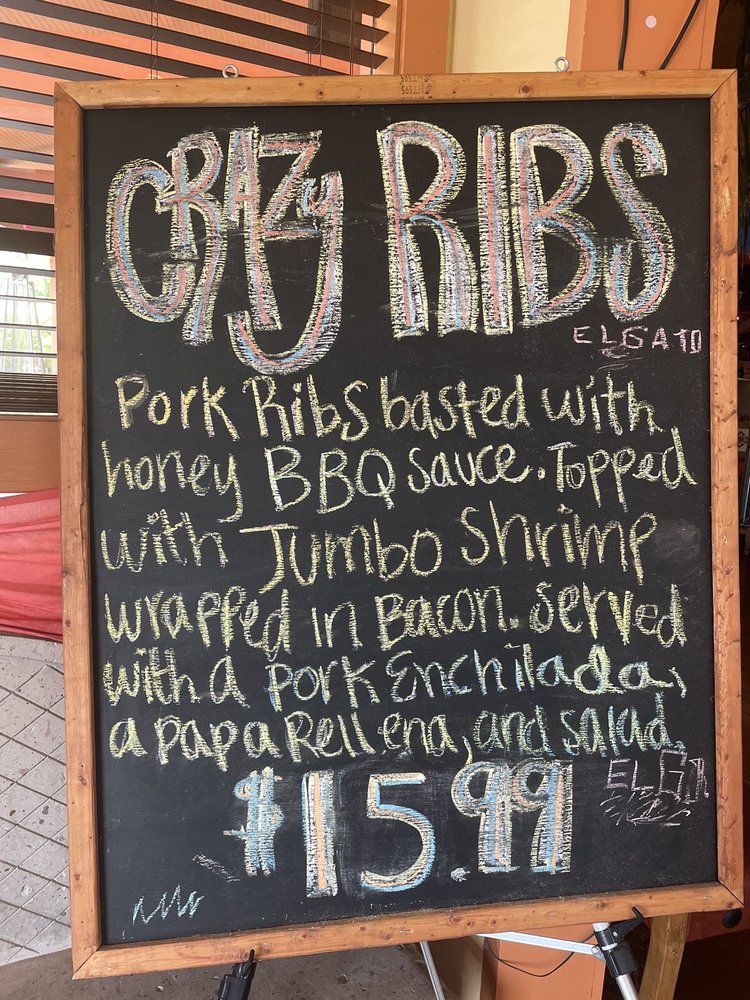 CRAZy RIBS
ELGATO
Pork Ribs basted with
honey BBQ sauce. Topped
with Jumbo Shrimp
wrapped in Bacon. served
with a pork Enchilada,
a papa Rellena, and salad.
$15.99